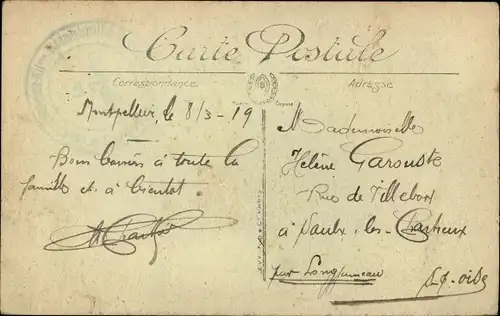 Carte Postale
Correspondance
Adresse
Montpellier, le 8/3-19
Bons baisers à toute la
famille et à bientot
Mademoiselle
Hélène Garouste
Rue de Villebon
à Saulx-les-Chartreux
par Longjumeau
S-&-Oise